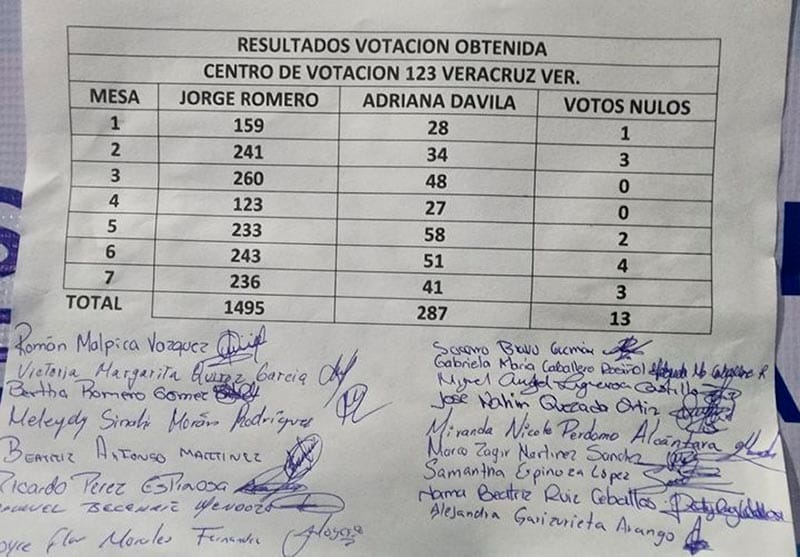 RESULTADOS VOTACION OBTENIDA
CENTRO DE VOTACION 123 VERACRUZ VER.
MESA JORGE ROMERO ADRIANA DAVILA VOTOS NULOS
1 159 28 1
2 241 34 3
3 260 48 0
4 123 27 0
5 233 58 2
6 243 51 4
7 236 41 3
TOTAL 1495 287 13
Román Malpica Vazquez
Victoria Margarita Quiroz Garcia
Bertha Romero Gomez
Meleydy Sinahi Morán Rodríguez
BEATRIZ ALFONSO MARTINEZ
Ricardo Perez Espinosa
MENDOZA
Flor Morales Fernandez
Socorro Bravo Guzmán
Gabriela Maria Caballero
Miguel Angel Figueroa Castillo
Jose Nahim Quezada Ortiz
Miranda Nicole Perdomo Alcántara
Marco Zagir Martinez Sanchez
Samantha Espinoza López
Norma Beatriz Ruiz Ceballos
Alejandra Garizurieta Arango